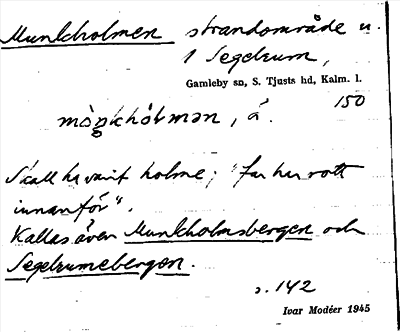 Munkholmen strandområde u.
1 Segelrum,
Gamleby sn, S. Tjusts hd, Kalm. l.
150
mòŋkhòlmən, å.
Skall ha varit holme; "far har rott
innanför".
Kallas även Munkholmsbergen och
Segelrumebergen.
s. 142
Ivar Modéer 1945